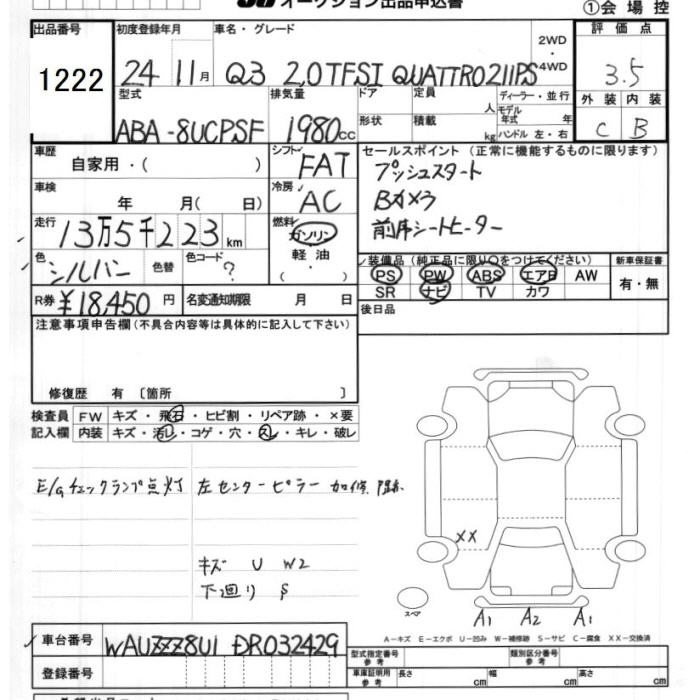 オークション出品申込書
①会場控
出品番号 初度登録年月 車名・グレード 2WD・4WD 評価点
1222 24 11月 Q3 2.0TFSI QUATTRO211PS 3.5
型式 排気量 ドア 定員 人 ディーラー・並行 外装 内装
ABA-8UCPSF 1980cc 形状 積載 kg モデル年式 年 ハンドル 左・右 C B
車歴 自家用・( ) シフト FAT セールスポイント (正常に機能するものに限ります)
プッシュスタート
車検 年 月( 日) 冷房 AC Bカメラ
走行 13万5千223km 燃料 ガソリン・軽油・( ) 前席シートヒーター
色 シルバー 色替 色コード ? 装備品 (純正品に限り○をつけてください) 新車保証書
PS PW ABS エアB AW 有・無
R券 ¥18,450円 名変通知期限 月 日 SR ナビ TV カワ
注意事項申告欄(不具合内容等は具体的に記入して下さい) 後日品
修復歴 有 〔箇所 〕
検査員 FW キズ・飛石・ヒビ割・リペア跡・×要
記入欄 内装 キズ・汚レ・コゲ・穴・スレ・キレ・破レ
E/Gチェックランプ点灯 左センターピラー 加修
XX
キズ U W2
下廻り S
スペア A1 A2 A1
A-キズ E-エクボ U-凹み W-補修跡 S-サビ C-腐食 XX-交換済
車台番号 WAUZZZ8U1 DR032429 型式指定番号 参考 類別区分番号 参考
登録番号 車庫証明用 参考 長さ cm 幅 cm 高さ cm